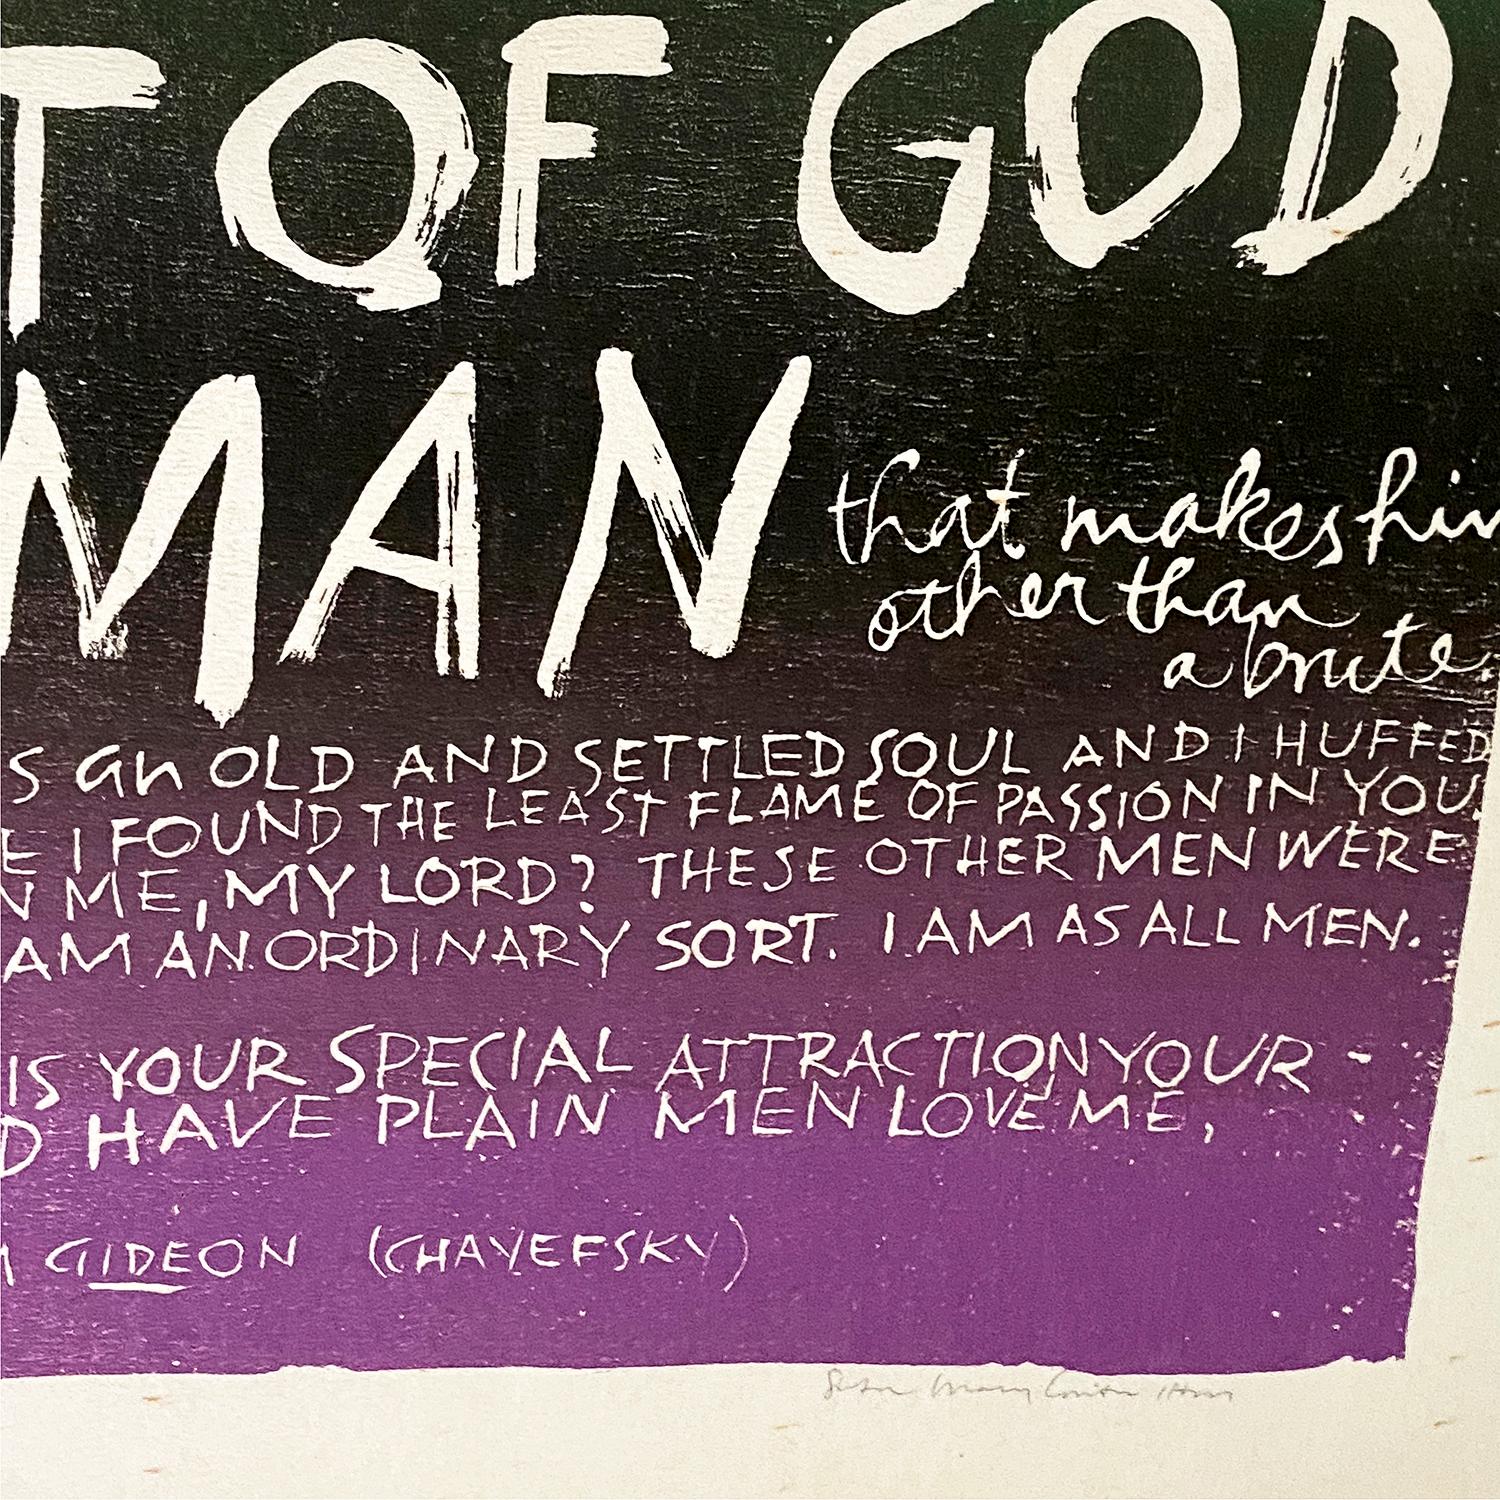 T OF GOD
MAN
that makes him
other than
a brute.
S an OLD AND SETTLED SOUL AND I HUFFED
E I FOUND THE LEAST FLAME OF PASSION IN YOU.
N ME, MY LORD? THESE OTHER MEN WERE
AM AN ORDINARY SORT. I AM AS ALL MEN.
IS YOUR SPECIAL ATTRACTION YOUR -
D HAVE PLAIN MEN LOVE ME,
GIDEON (CHAYEFSKY)
Sister Mary Corita IHM